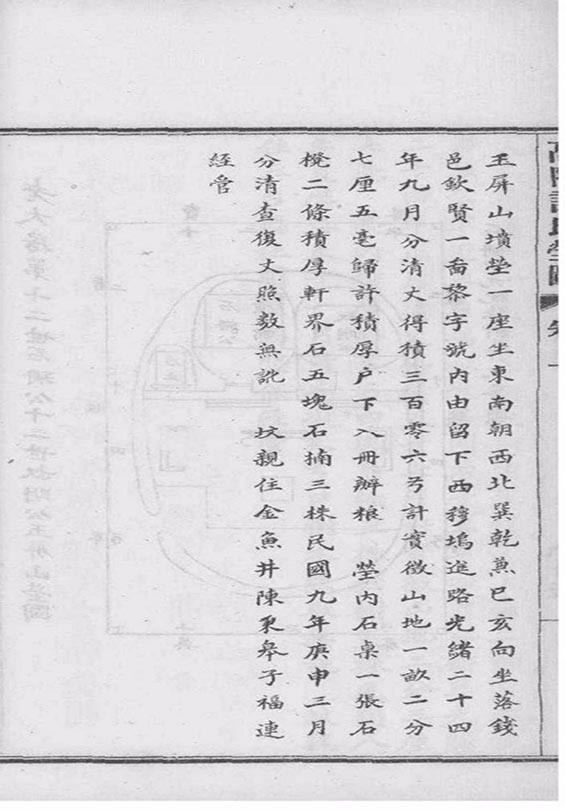 玉屏山墳塋一座坐東南朝西北巽乾兼巳亥向坐落錢
邑欽賢一啚黎字號內由留下西穆塢進路光緒二十四
年九月分清丈得積三百零六弓計實徵山地一畝二分
七厘五毫歸許積厚户下入冊辦粮　塋內石桌一張石
櫈二條積厚軒界石五塊石揇三株民國九年庚申三月
分清查復丈照数無訛　坟親住金魚井陳更皋子福連
經管
高陽許氏塋圖